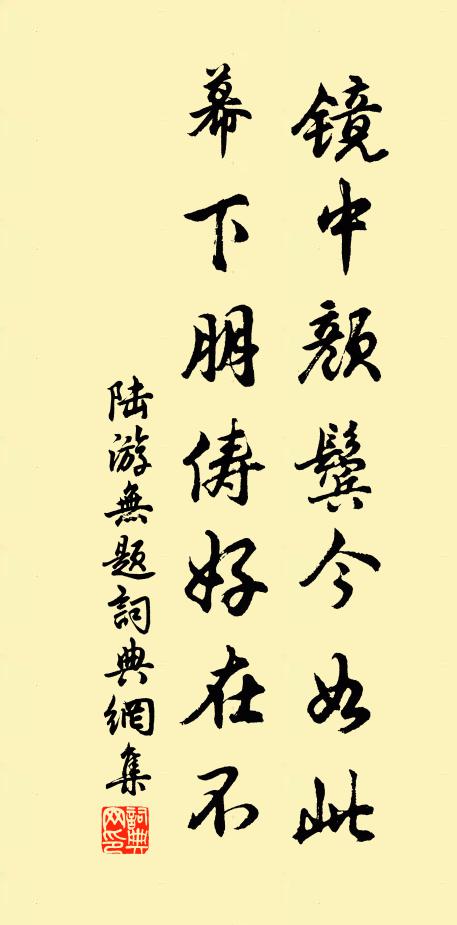 鏡中顏鬢今如此
幕下朋儔好在不
陸游無題詞典網集
詞典網印